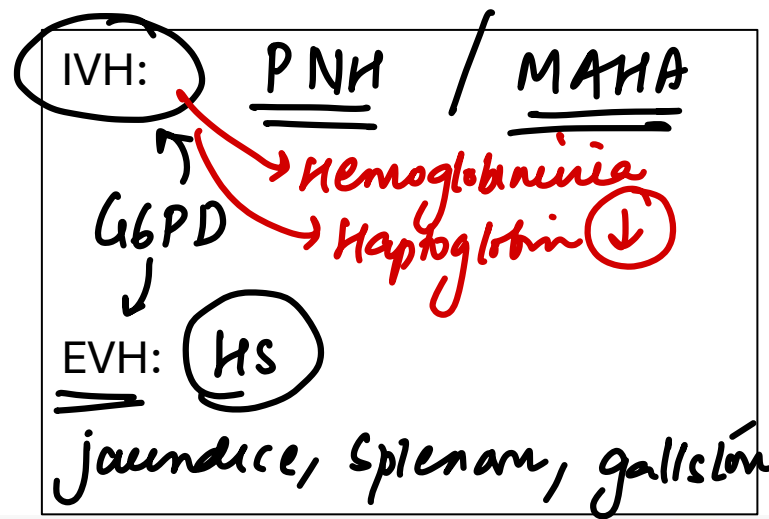 IVH: PNH / MAHA
Hemoglobinuria
G6PD
Haptoglobin ↓
EVH: HS
jaundice, splenom, gallston